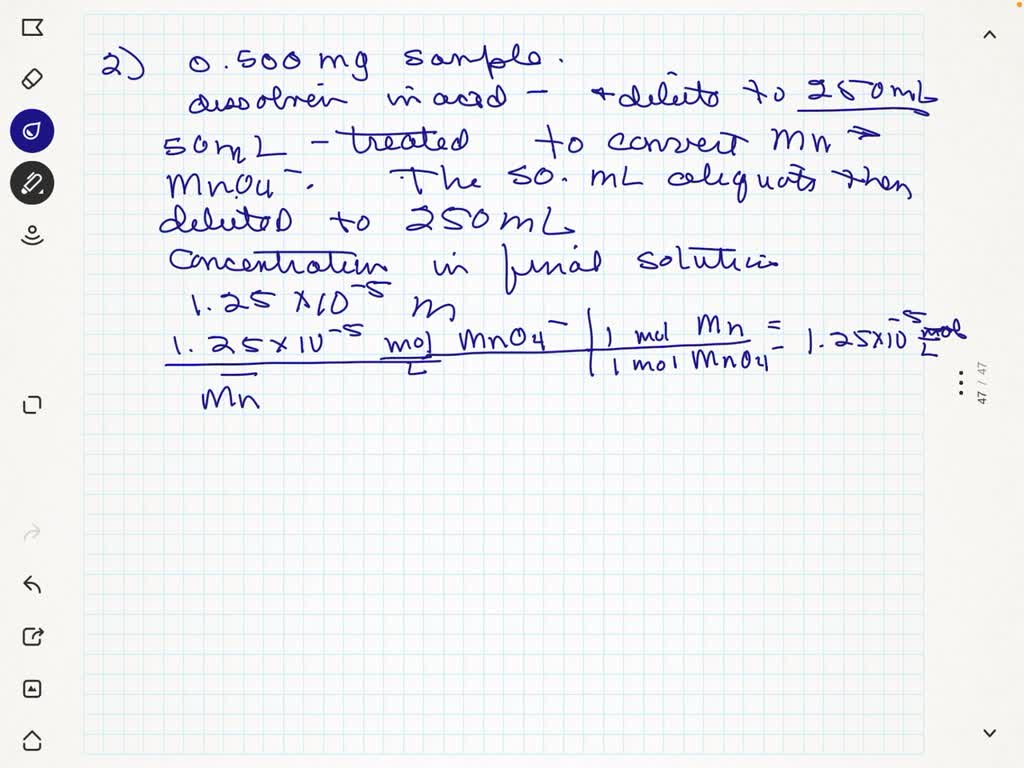 2) 0.500 mg sample.
dissolve in acid - + dilute to 250mL
50mL - treated to convert Mn →
MnO4⁻. The 50. mL aliquots then
diluted to 250mL
Concentration in final solution
1.25 × 10⁻⁵ M
1.25×10⁻⁵ mol MnO4⁻ | 1 mol Mn = 1.25×10⁻⁵ mol
L | 1 mol MnO4⁻ L
Mn
47 / 47